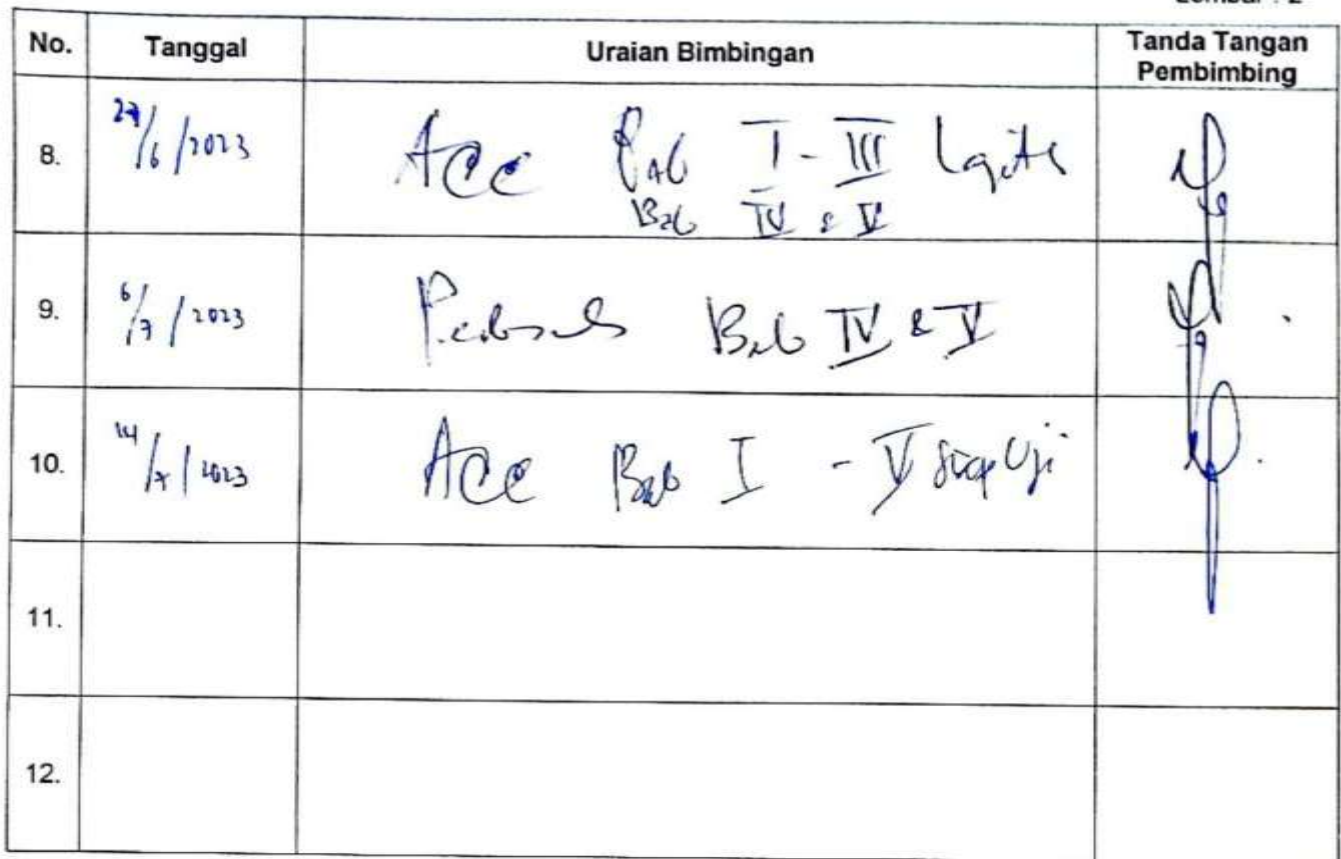 Lembar : 2
No. Tanggal Uraian Bimbingan Tanda Tangan Pembimbing
8. 27/6/2023 Acc Bab I - III
Bab IV & V
9. 6/7/2023 Bab IV & V
10. 14/7/2023 Acc Bab I - V Siap Uji
11.
12.